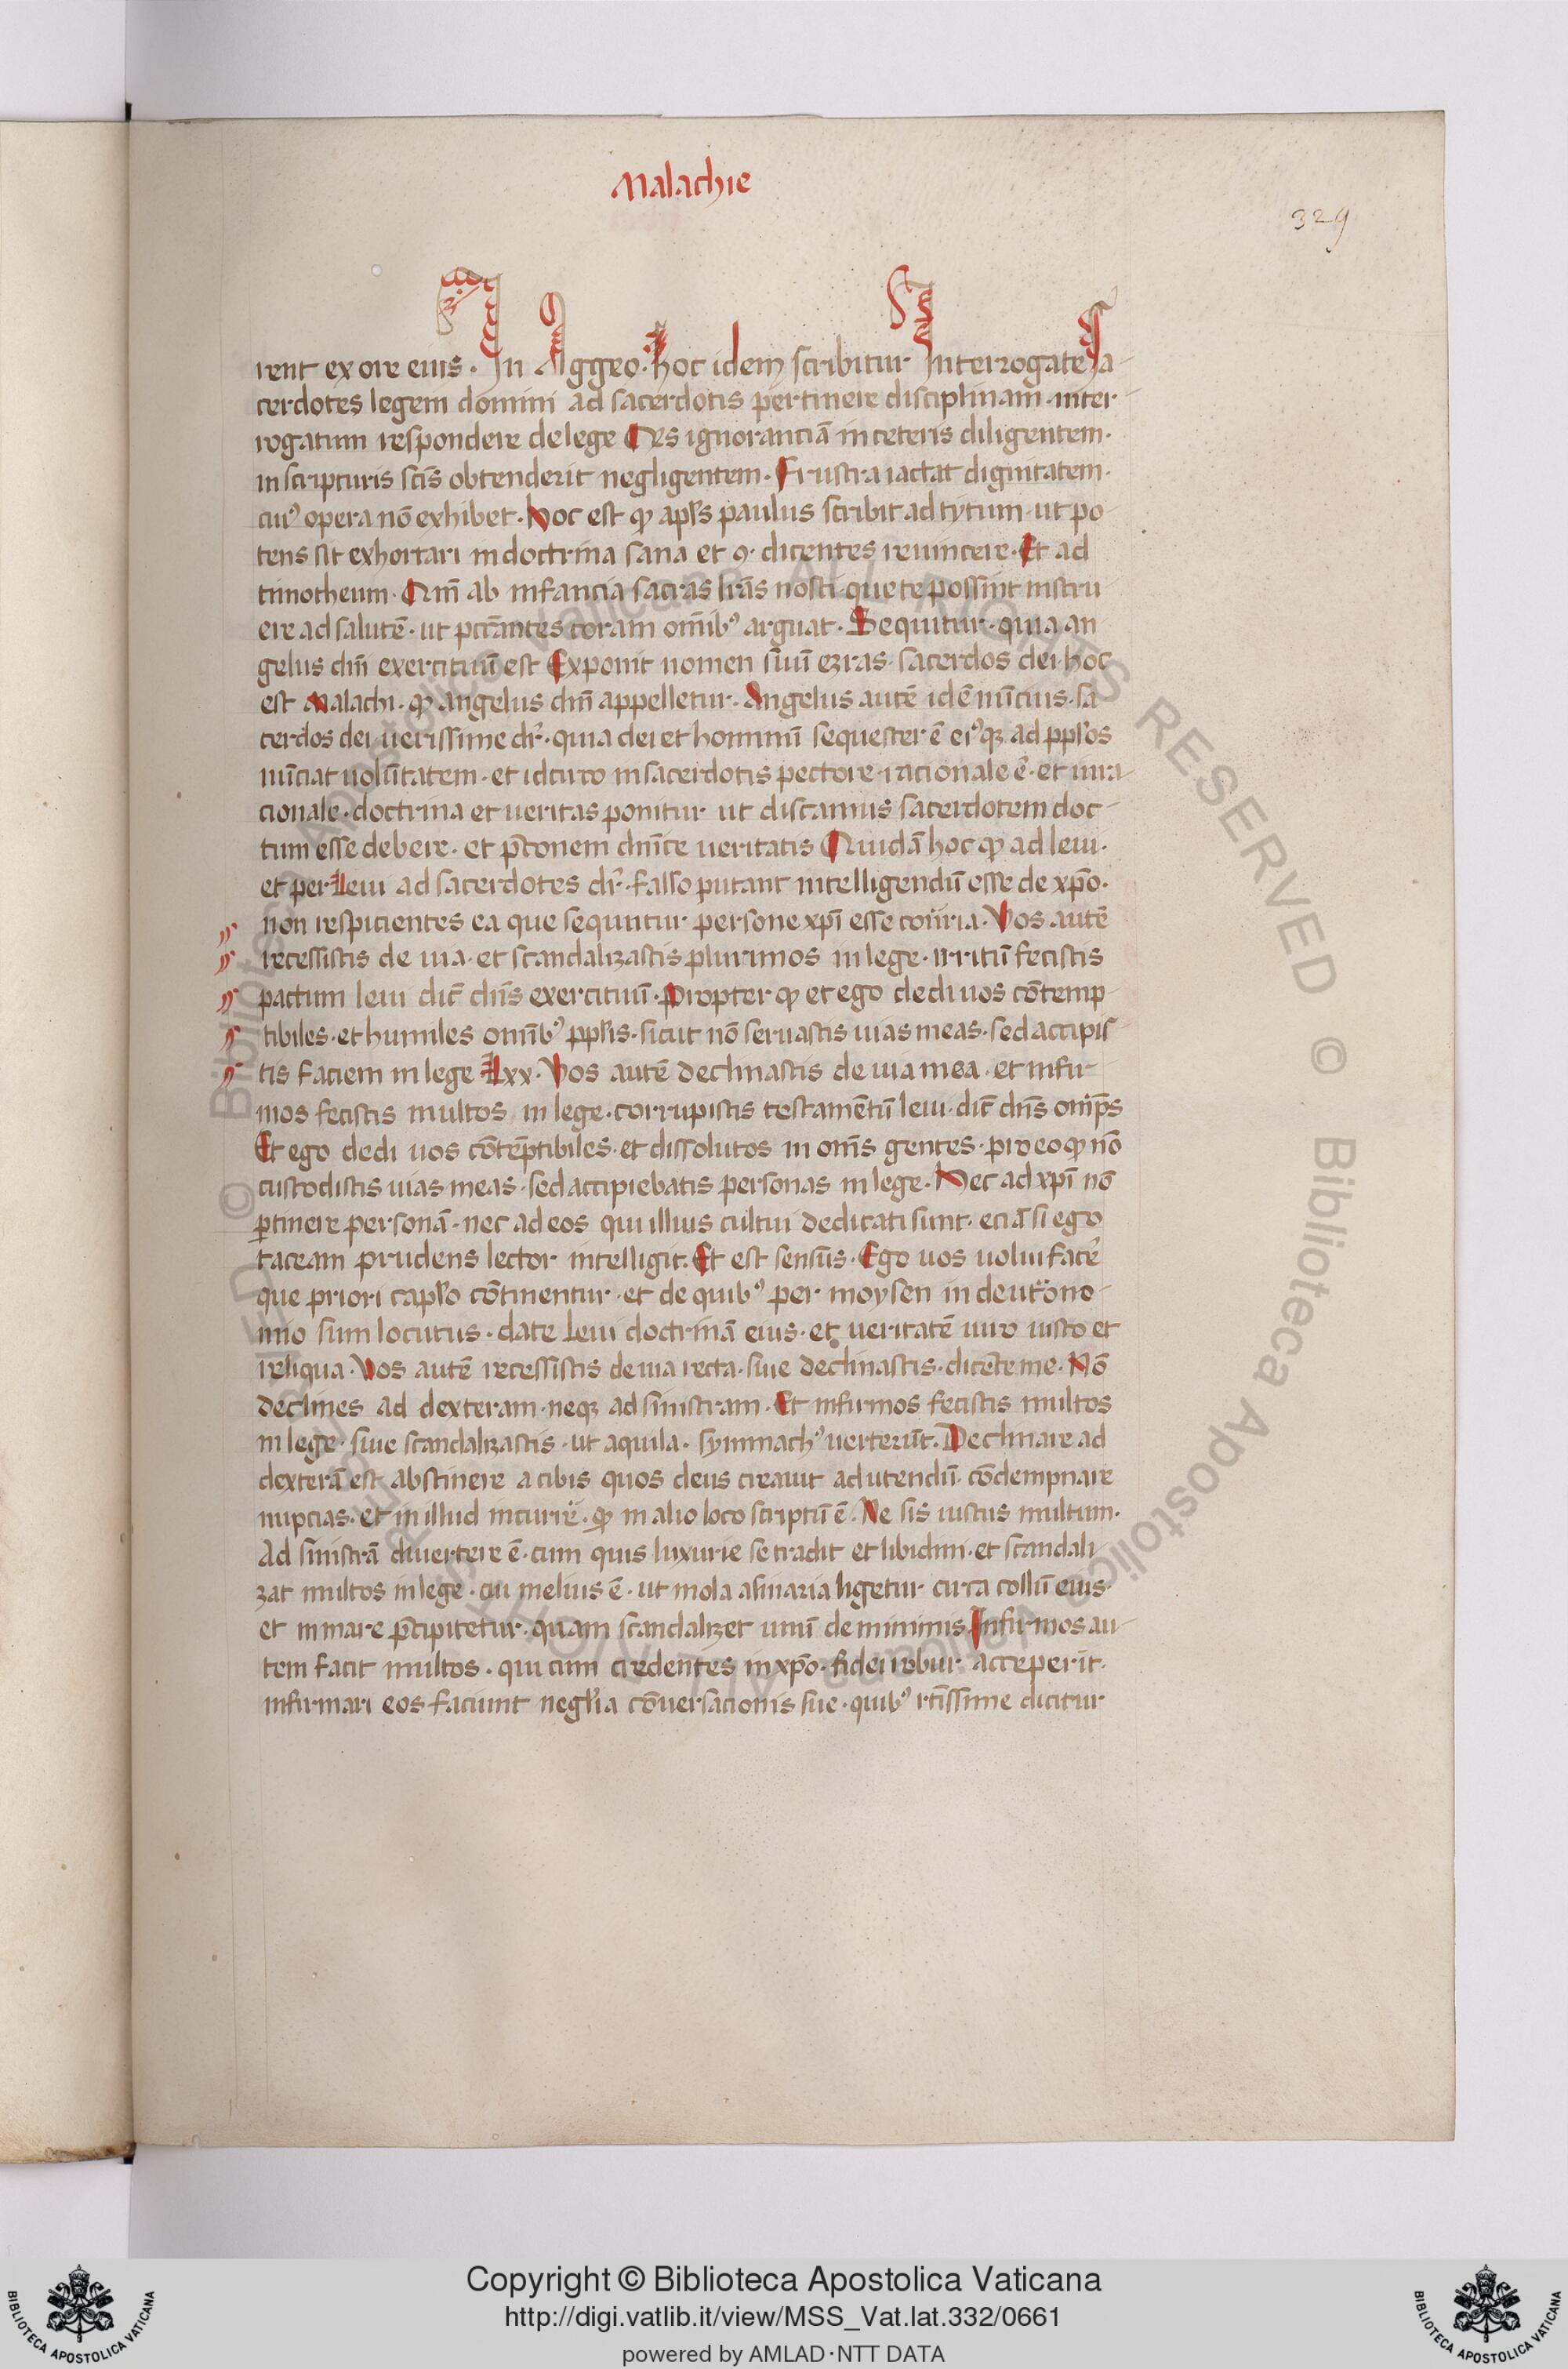 Malachie
329
rent ex ore eius · In Aggeo · hoc idem scribitur Interrogate Sa-
cerdotes legem domini ad sacerdotis pertinere disciplinam · inter-
rogatum respondere de lege Nes ignoranciā in ceteris diligentem ·
in scripturis scīs obtenderit negligentem · Frustra iactat dignitatem ·
cuiꝰ opera nō exhibet · hoc est ꝙ apl̄s paulus scribit ad tytum · ut po-
tens sit exhortari in doctrina sana et ꝯ · dicentes reuincere · Et ad
timotheum · Qm̄ ab infancia sacras lrās nosti · que te possint instru
ere ad salutē · ut pccāntes coram omībꝰ arguat · Sequitur · quia an
gelus dn̄i exercituū est Exponit nomen suū ezras · sacerdos dei · hoc
est Malachi · ꝙ angelus dn̄i appelletur · Angelus autē idē nūcius · sa
cerdos dei uerissime dr̄ · quia dei et hominū sequester ē eiꝰqꝫ ad ppl̄os
nūciat uolūtatem · et idcirco in sacerdotis pectore · racionale ē · et in ra-
cionale · doctrina et ueritas ponitur ut discamus sacerdotem doc-
tum esse debere · et p̄conem dn̄ice ueritatis Quidā hoc ꝙ ad leui ·
et per Leui ad sacerdotes dr̄ · falso putant intelligendū esse de xp̄o ·
non respicientes ea que sequntur persone xp̄i esse cont̄ria · Vos autē
recessistis de uia · et scandalizastis plurimos in lege · irritū fecistis
pactum leui dic̄ dn̄s exercituū · Propter ꝙ et ego dedi uos cōtemp-
tibiles · et humiles omībꝰ ppl̄is · sicut nō seruastis uias meas · sed accipis-
tis faciem in lege Lxx · Vos autē declinastis de uia mea · et infir-
mos fecistis multos in lege · corrupistis testamētū leui · dic̄ dn̄s omp̄s
Et ego dedi uos cōtēptibiles · et dissolutos in omīs gentes · pro eo ꝙ nō
custodistis uias meas · sed accipiebatis personas in lege · Hec ad xp̄i nō
ꝑtinere personā · nec ad eos qui illius cultui dedicati sunt · eciā si ego
taceam prudens lector intelligit · Et est sensus · Ego uos uolui facē
que priori capl̄o cōtinentur · et de quibꝰ per moysen in deut̄ono-
mio sum locutus · date Leui doctrinā eius · et ueritatē uiro iusto et
reliqua · Vos autē recessistis de uia recta · siue declinastis · dicēte me · Nō
declines ad dexteram · neqꝫ ad sinistram · Et infirmos fecistis multos
in lege · siue scandalizastis · ut aquila · symmachꝰ uerterūt · Declinare ad
dexterā est abstinere a cibis quos deus creauit ad utendū · cōdempnare
nupcias · et in illud incurrē · ꝙ in alio loco scriptū ē · Ne sis iustus multum ·
Ad sinistrā diuertere ē · cum quis luxurie se tradit et libidini · et scandali-
zat multos in lege · cui melius ē · ut mola asinaria ligetur circa collū eius ·
et in mare p̄cipitetur · quam scandalizet unū de minimis · Infirmos au-
tem facit multos · qui cum credentes in xp̄o · fidei robur acceperīt ·
infirmari eos faciunt negl̄ia cōuersacionis sue · quibꝰ rc̄issime dicitur
Copyright © Biblioteca Apostolica Vaticana
http://digi.vatlib.it/view/MSS_Vat.lat.332/0661
powered by AMLAD·NTT DATA